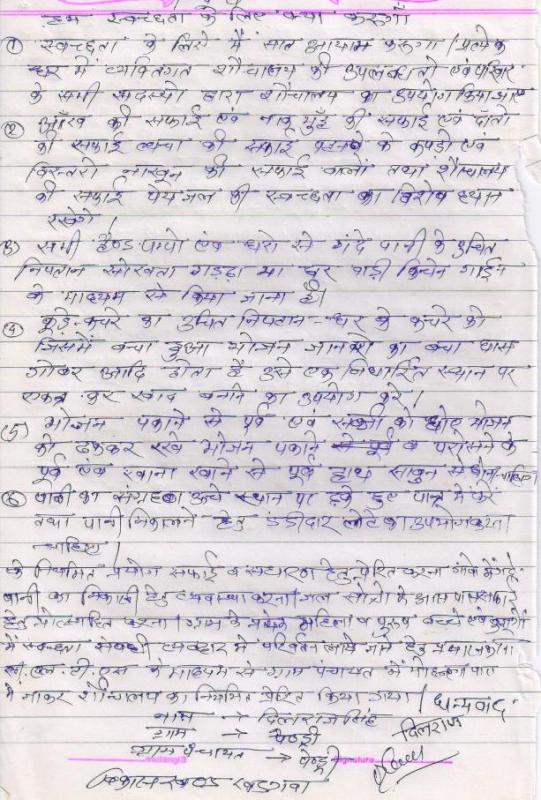 हम स्वच्छता के लिए क्या करूगाँ
① स्वच्छता के लिये मैं सात आयाम करूगा। प्रत्येक
घर में व्यक्तिगत शौचालय की उपलब्धता एवं परिवार
के सभी सदस्यो द्वारा शौचालय का उपयोग किया जाए
② आँख की सफाई एवं नाक मुँह की सफाई एवं दाँतो
की सफाई त्वचा की सफाई पहनने के कपड़ो एवं
बिस्तरो नाखून की सफाई बालों तथा शौचालय
की सफाई पेयजल की स्वच्छता का विशेष ध्यान
रखेगे।
3) सभी हैण्डपम्पो एवं घरो से गंदे पानी के उचित
निपतान सोखता गड्ढा या घर बाड़ी किचेन गार्डन
के माध्यम से किया जाना है।
④ कूड़े-कचरे का उचित निपतान - घर के कचरे को
जिसमें बचा हुआ भोजन जानवरो का बचा घास
गोबर आदि होता है उसे एक निर्धारित स्थान पर
एकत्र कर खाद बनाने का उपयोग करे।
(5) भोजन पकाने से पूर्व एवं सब्जी को धोए भोजन
को ढककर रखे भोजन पकाने से पूर्व व परोसने के
पूर्व एवं खाना खाने से पूर्व हाथ साबुन से धोना चाहिए
⑥ पानी का संग्रहण ऊचे स्थान पर ढके हुए पात्र में करे
तथा पानी निकालने हेतु डंडीदार लोटे का उपयोग करना
चाहिए।
के नियमित प्रयोग सफाई व सधारण हेतु प्रेरित करना गांव के गंदे
पानी का निकासी हेतु व्यवस्था करना। जल स्रोतो के आस पास सफाई
हेतु प्रोत्साहित करना। ग्राम के प्रत्येक महिला व पुरूष बच्चे एवं
में स्वच्छता संबंधी व्यवहार में परिवर्तन लाये जाने हेतु
के माध्यम से ग्राम पंचायत में
में जाकर शौचालय का नियमित प्रेरित किया गया। धन्यवाद
नाम → दिलराज सिंह
दिलराज
ग्राम → पेण्ड्री
ग्राम पंचायत → पेण्ड्री
विकासखण्ड खडगवा